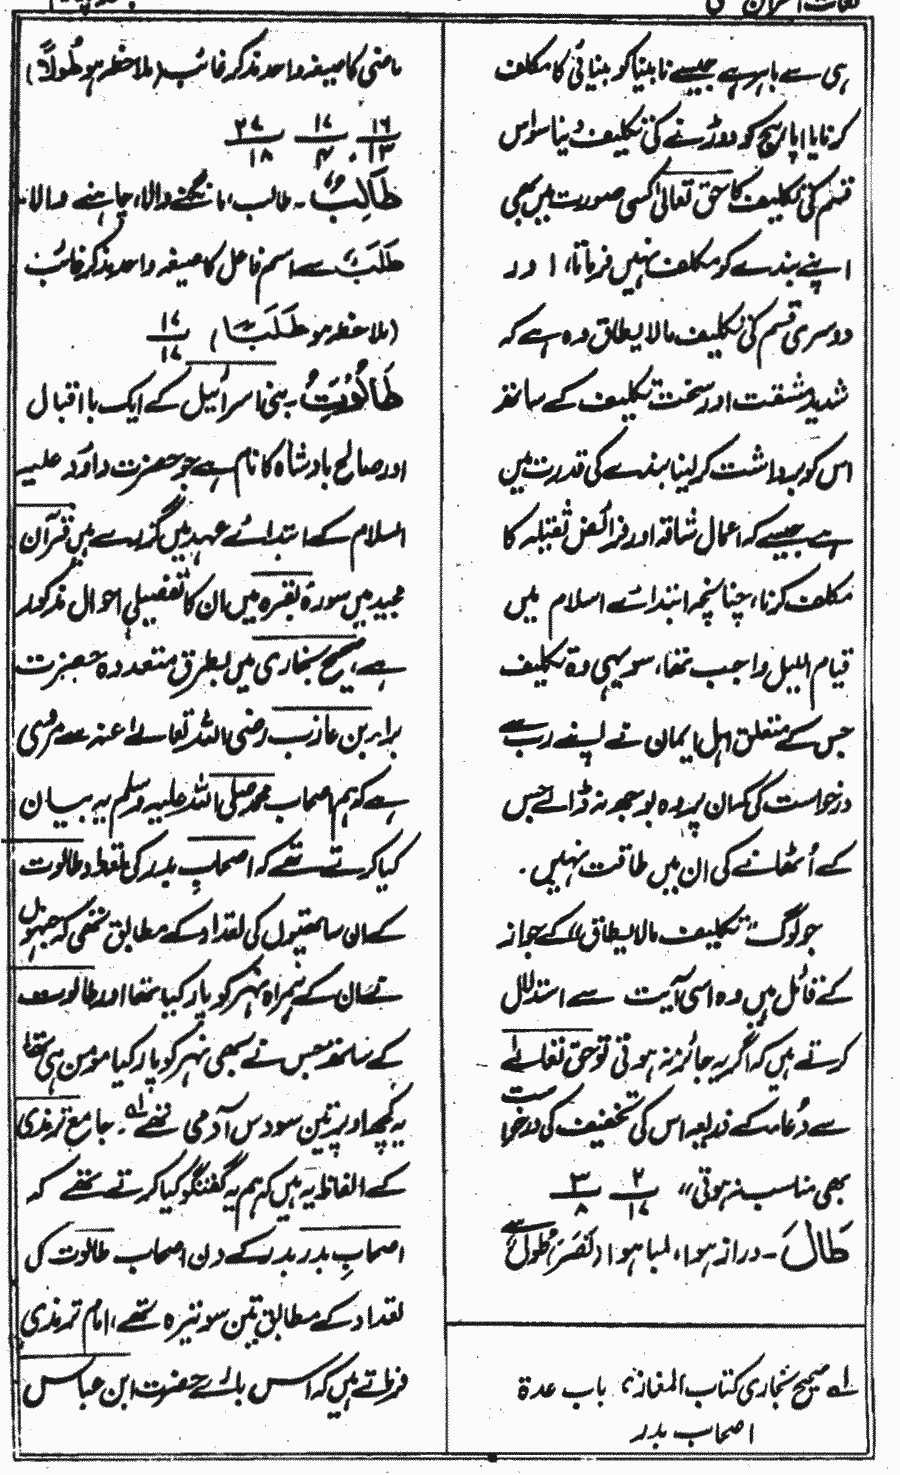 ہی سے باہر ہے جیسے نابینا کو بینائی کا مکلف
کرنا یا اپاہج کو دوڑنے کی تکلیف دینا سو اس
قسم کی تکلیف کا حق تعالیٰ کسی صورت میں بھی
اپنے بندے کو مکلف نہیں فرماتا، اور
دوسری قسم کی تکلیف مالا یطاق وہ ہے کہ
شدید مشقت اور سخت تکلیف کے ساتھ
اس کو برداشت کر لینا بندے کی قدرت میں
ہے جیسے کہ اعمال شاقہ اور فرائض ثقیلہ کا
مکلف کرنا، چنانچہ ابتدائے اسلام میں
قیام اللیل واجب تھا، سو یہی وہ تکلیف
جس کے متعلق اہل ایمان نے اپنے رب سے
درخواست کی کہ ان پر وہ بوجھ نہ ڈالے جس
کے اُٹھانے کی ان میں طاقت نہیں.
جو لوگ "تکلیف مالا یطاق" کے جواز
کے قائل ہیں وہ اسی آیت سے استدلال
کرتے ہیں کہ اگر یہ جائز نہ ہوتی تو حق تعالےٰ
سے دُعا کے ذریعہ اس کی تخفیف کی درخواست
بھی مناسب نہ ہوتی" ۲/۱۷ ۳/۸
طَالَ - دراز ہوا، لمبا ہوا (نَصَرَ) طُولٌ سے
ماضی کا صیغہ واحد مذکر غائب (ملاحظہ ہو طُولًا)
۱۶/۱۳ ۱۷/۴ ۲۷/۱۸
طَالِبُ - طالب، مانگنے والا، چاہنے والا،
طَلَبٌ سے اسم فاعل کا صیغہ واحد مذکر غائب
(ملاحظہ ہو طَلَبًا) ۱۷/۱۷
طَالُوْتَ - بنی اسرائیل کے ایک بااقبال
اور صالح بادشاہ کا نام ہے جو حضرت داؤد علیہ
السلام کے ابتدائے عہد میں گزرے ہیں قرآن
مجید میں سورۂ بقرہ میں ان کا تفصیلی احوال مذکور
ہے، صحیح بخاری میں بطرق متعددہ حضرت
براء بن عازب رضی اللہ تعالےٰ عنہ سے مروی
ہے کہ ہم اصحاب محمد صلی اللہ علیہ وسلم یہ بیان
کیا کرتے تھے کہ اصحابِ بدر کی تعداد طالوت
کے ان ساتھیوں کی تعداد کے مطابق تھی کہ جنہوں
نے ان کے ہمراہ نہر کو پار کیا تھا اور طالوت
کے ساتھ جس نے بھی نہر کو پار کیا مومن ہی تھا
یہ کچھ اوپر تین سو دس آدمی تھے لہ. جامع ترمذی
کے الفاظ یہ ہیں کہ ہم یہ گفتگو کیا کرتے تھے کہ
اصحابِ بدر بدر کے دن اصحاب طالوت کی
تعداد کے مطابق تین سو تیرہ تھے، امام ترمذی
فرماتے ہیں کہ اس بارے حضرت ابن عباس
لہ صحیح بخاری کتاب المغازی باب عدة
اصحاب بدر